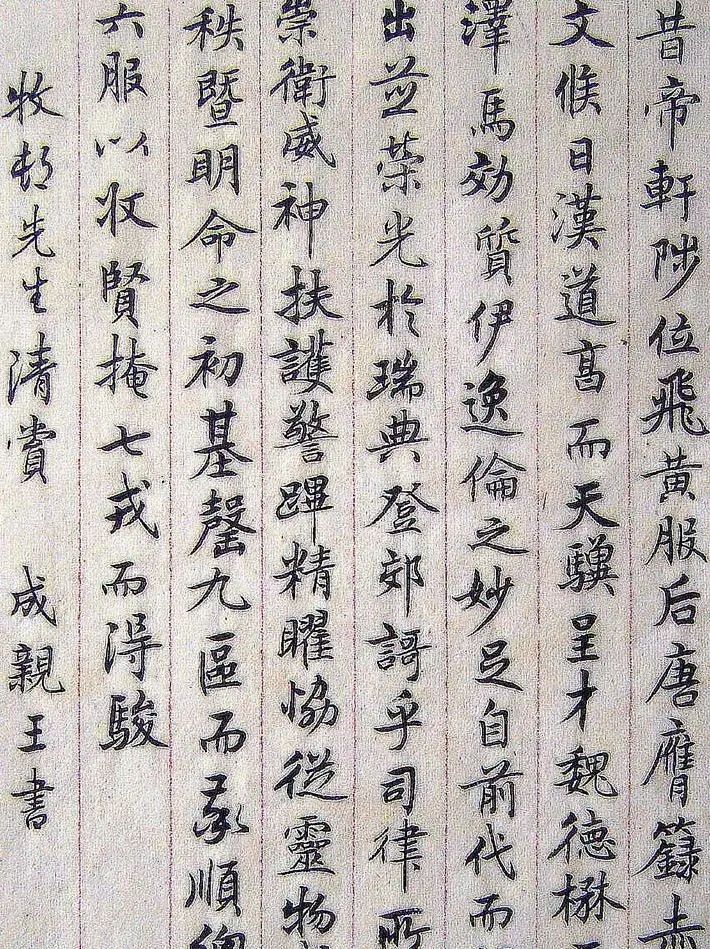 昔帝軒陟位飛黄服后唐膺籙赤
文候日漢道髙而天驥呈才魏德楙
澤馬効質伊逸倫之妙足自前代而
出並榮光於瑞典登郊謌乎司律所
崇衛威神扶護警蹕精曜恊從靈物
秩暨明命之初基罄九區而率順
六服以收賢掩七戎而得駿
牧邨先生清賞 成親王書